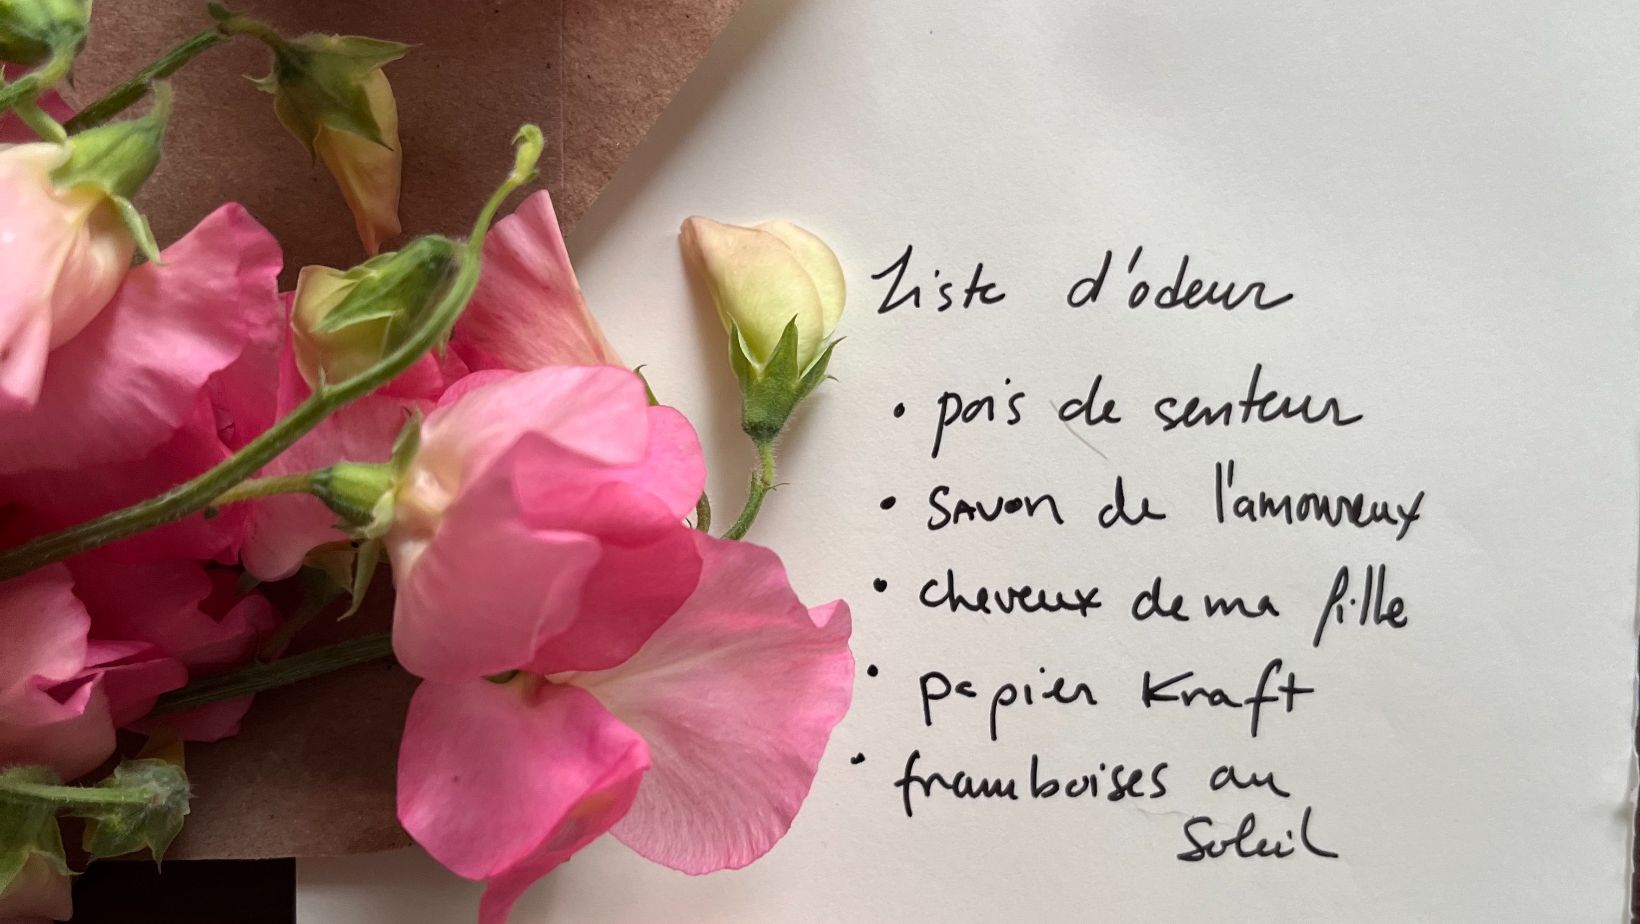 Liste d'odeur
• pois de senteur
• savon de l'amoureux
• cheveux de ma fille
• papier Kraft
• framboises au
soleil